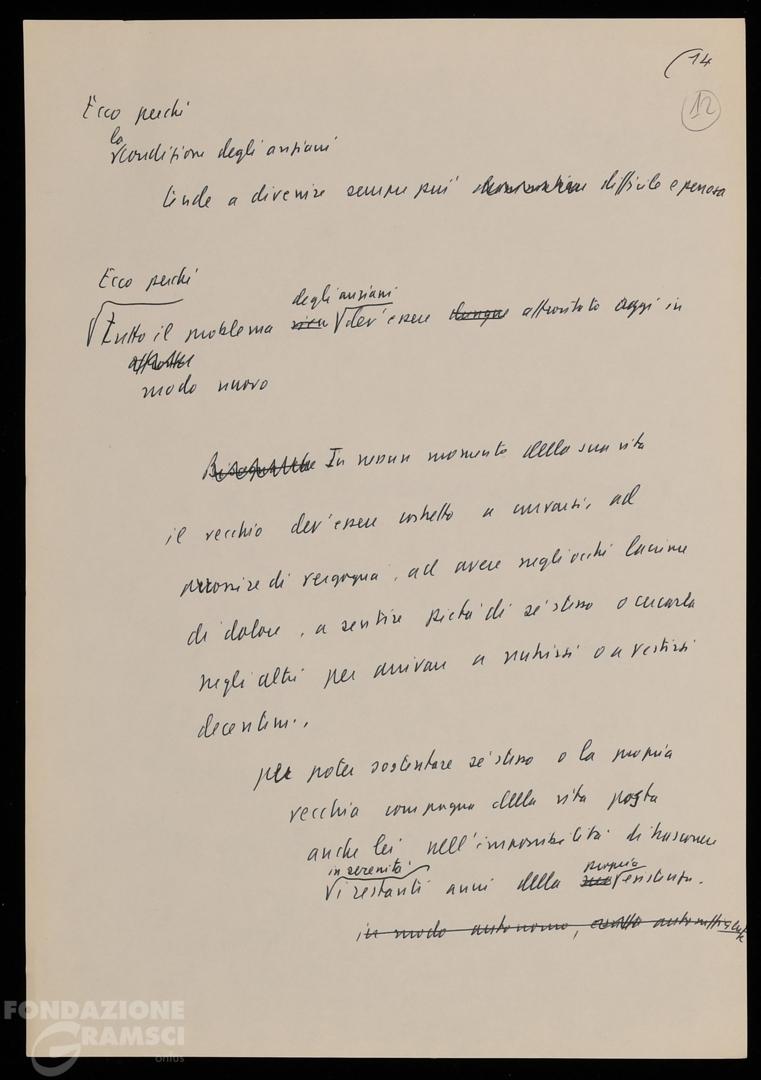 (14
12
Ecco perchè
la
condizione degli anziani
tende a divenire sempre più difficile e penosa
Ecco perchè
degli anziani
Tutto il problema dev'essere dunque affrontato oggi in
modo nuovo
In nessun momento della sua vita
il vecchio dev'essere costretto a curvarsi, ad
arrossire di vergogna, ad avere negli occhi lacrime
di dolore, a sentire pietà di sé stesso o cercarla
negli altri per arrivare a nutrirsi o a vestirsi
decentem.,
per poter sostentare sé stesso o la propria
vecchia compagna della vita posta
anche lei nell'impossibilità di trascorrere
in serenità
propria
i restanti anni della sua esistenza.
in modo autonomo,
FONDAZIONE
GRAMSCI
onlus